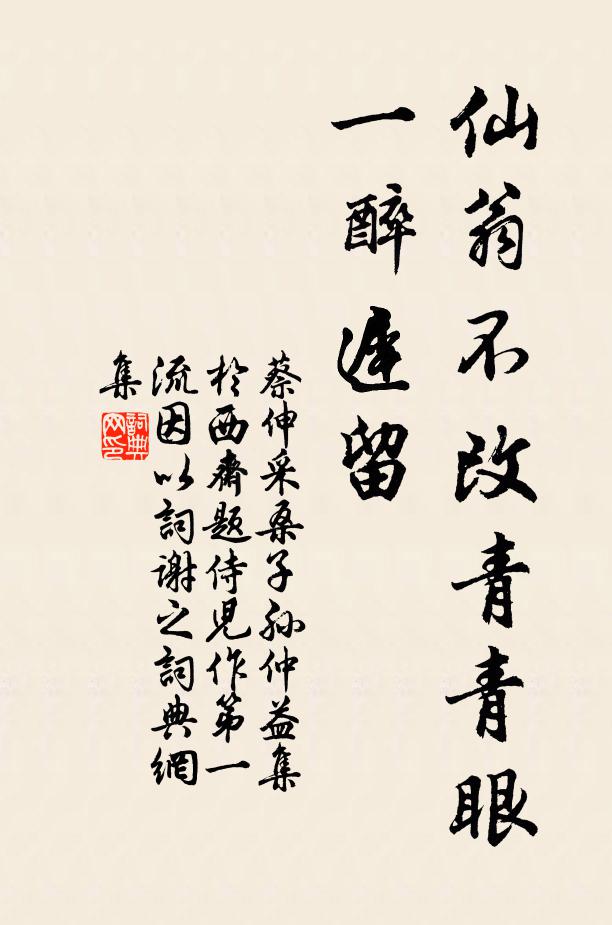 仙翁不改青青眼
一醉遲留
蔡伸采桑子孙仲益集
於西齋題侍児作第一
流因以詞謝之詞典網
集
詞典
网印